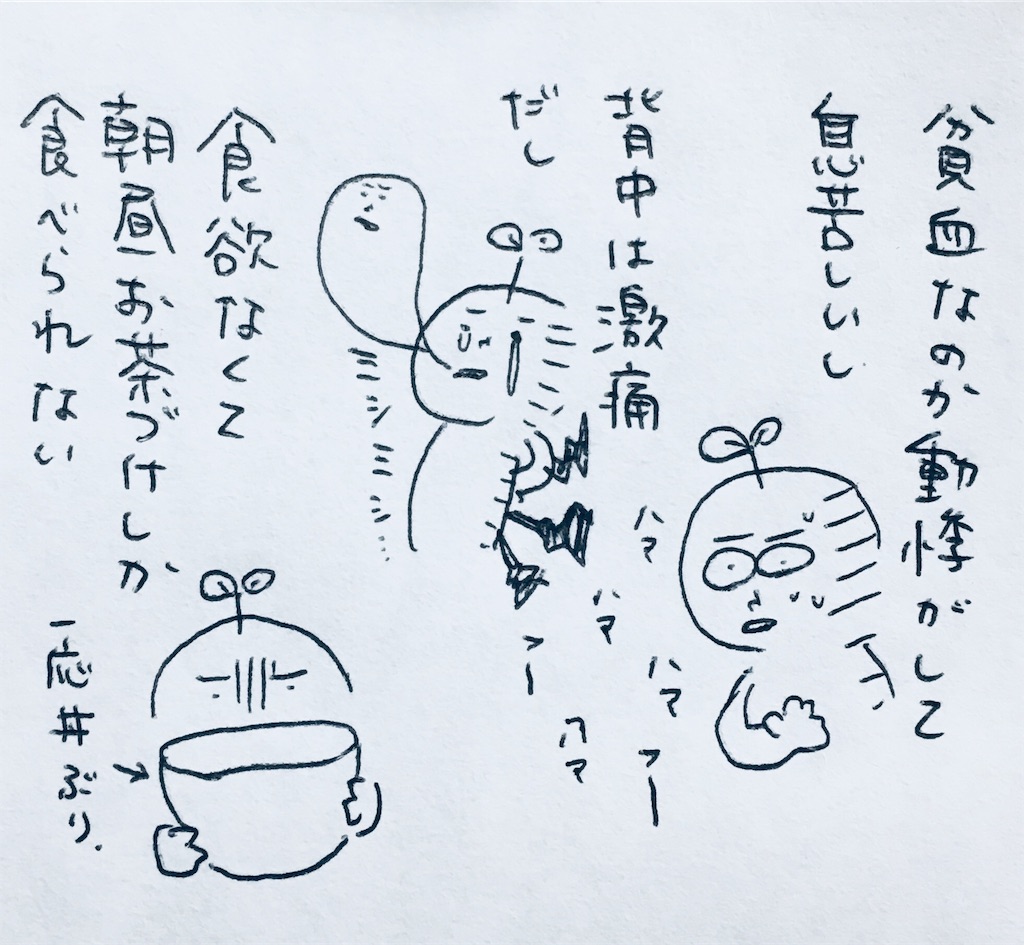 貧血なのか動悸がして
息苦しいし
背中は激痛
だし
ハァ
ハァ
ハァ
ハァ
フー
フー
食欲なくて
朝昼お茶づけしか
食べられない
一応丼ぶり.